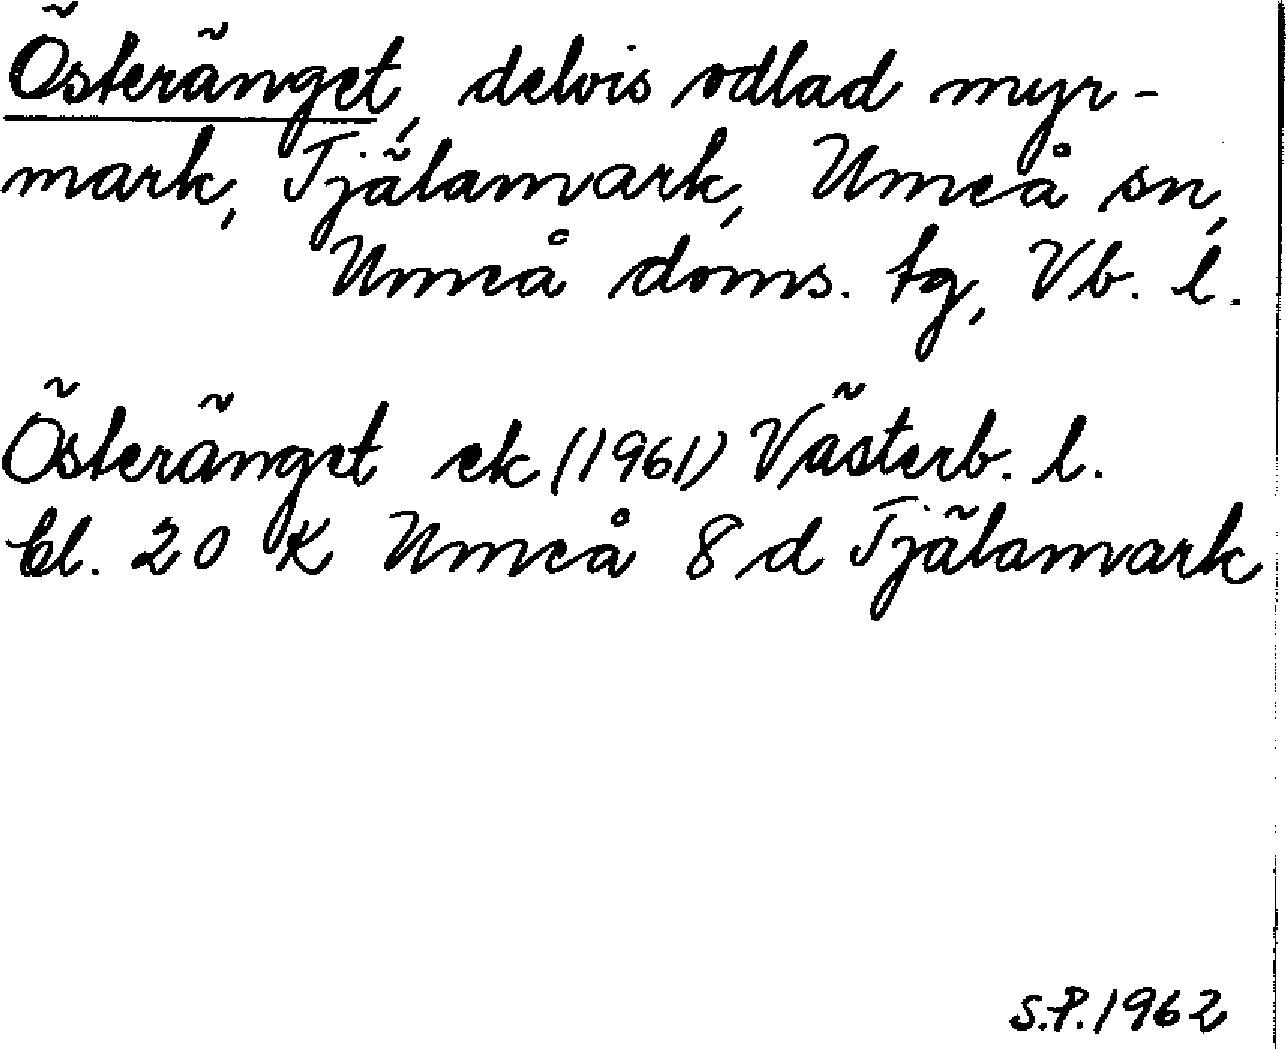 Österänget, delvis odlad myr-
mark, Tjälamark, Umeå sn,
Umeå doms. tg, Vb. l.
Österänget ek (1961) Västerb. l.
bl. 20 K Umeå 8 d Tjälamark
S.P. 1962